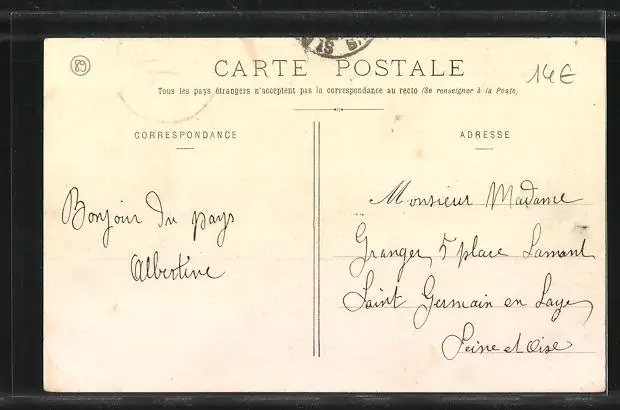 89
CARTE POSTALE
14€
Tous les pays étrangers n'acceptent pas la correspondance au recto (Se renseigner à la Poste)
CORRESPONDANCE
Bonjour du pays
Albertine
ADRESSE
Monsieur Madame
Granger, 5 place Lamant
Saint Germain en Laye,
Seine et Oise